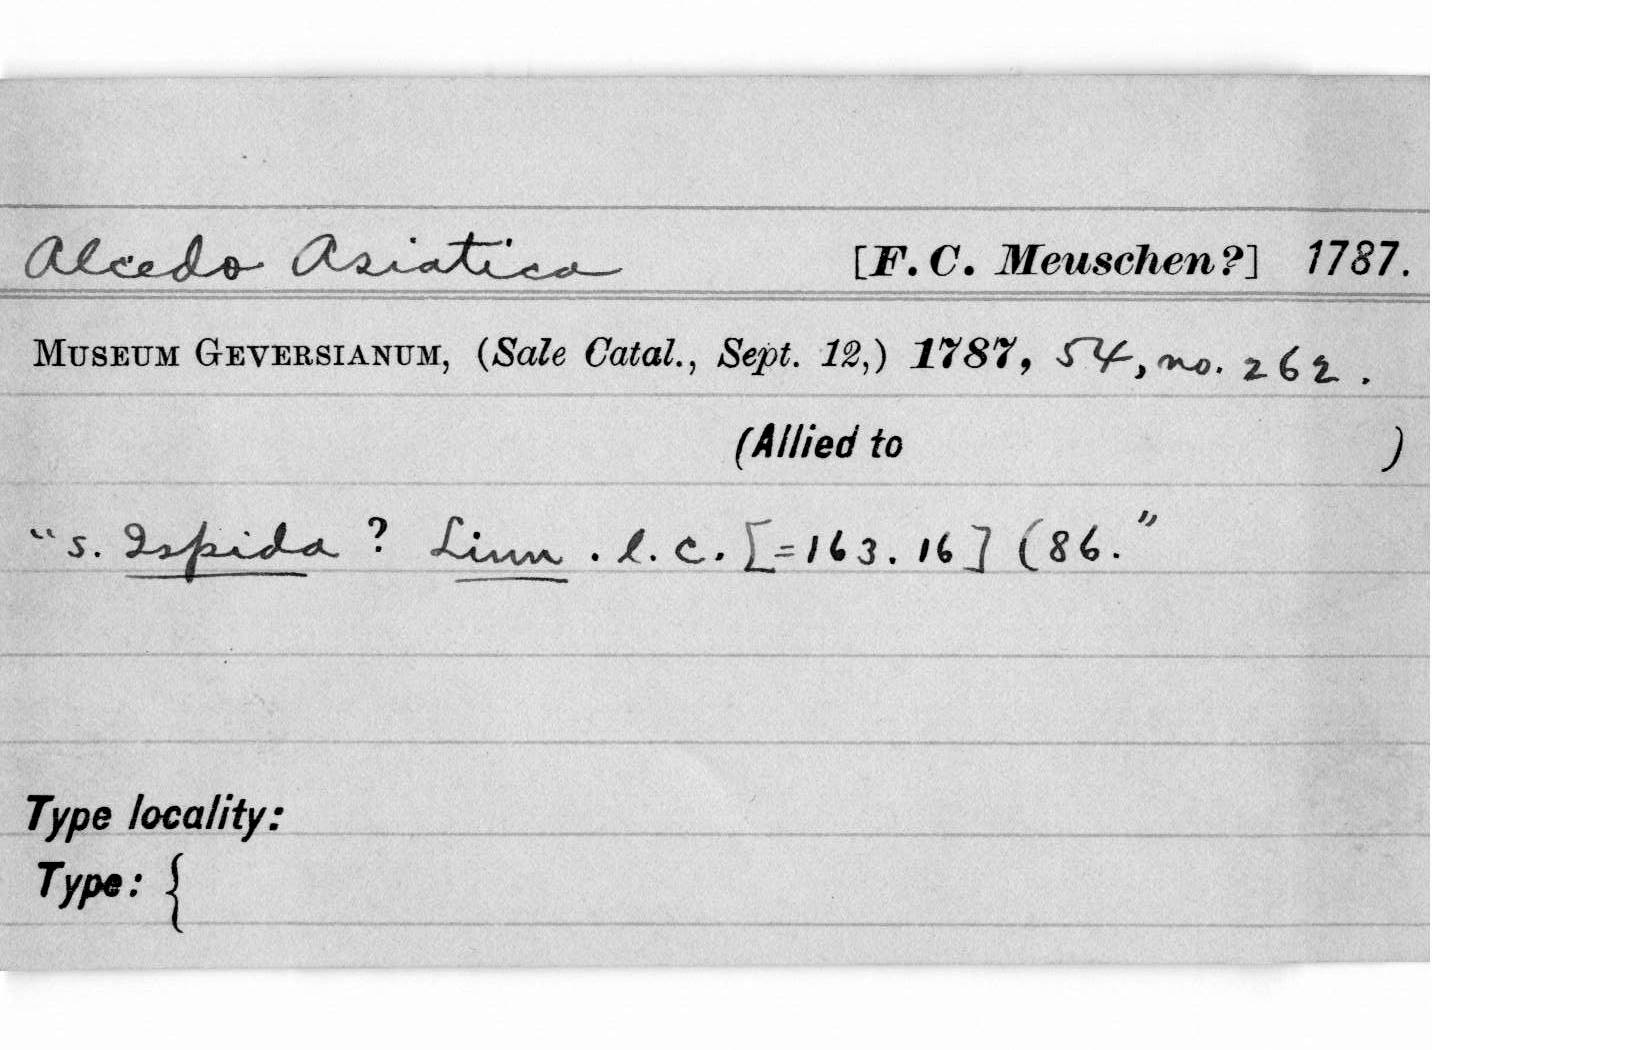 Alcedo Asiatica [F. C. Meuschen?] 1787.
Museum Geversianum, (Sale Catal., Sept. 12,) 1787, 54, no. 262.
(Allied to )
"s. Ispida? Linn. l. c. [=163. 16] (86."
Type locality:
Type: {